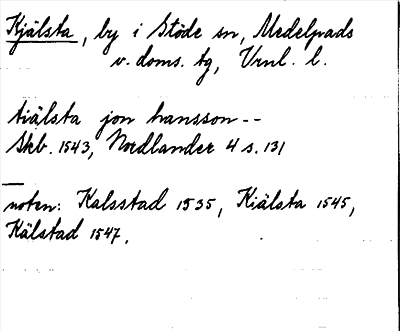 Kjälsta, by i Stöde sn, Medelpads
v. doms. tg, Vrnl. l.
tiälsta jon hansson--
Skb. 1543, Nordlander 4 s. 131
noten: Kalsstad 1535, Kiälsta 1545,
Kälstad 1547.